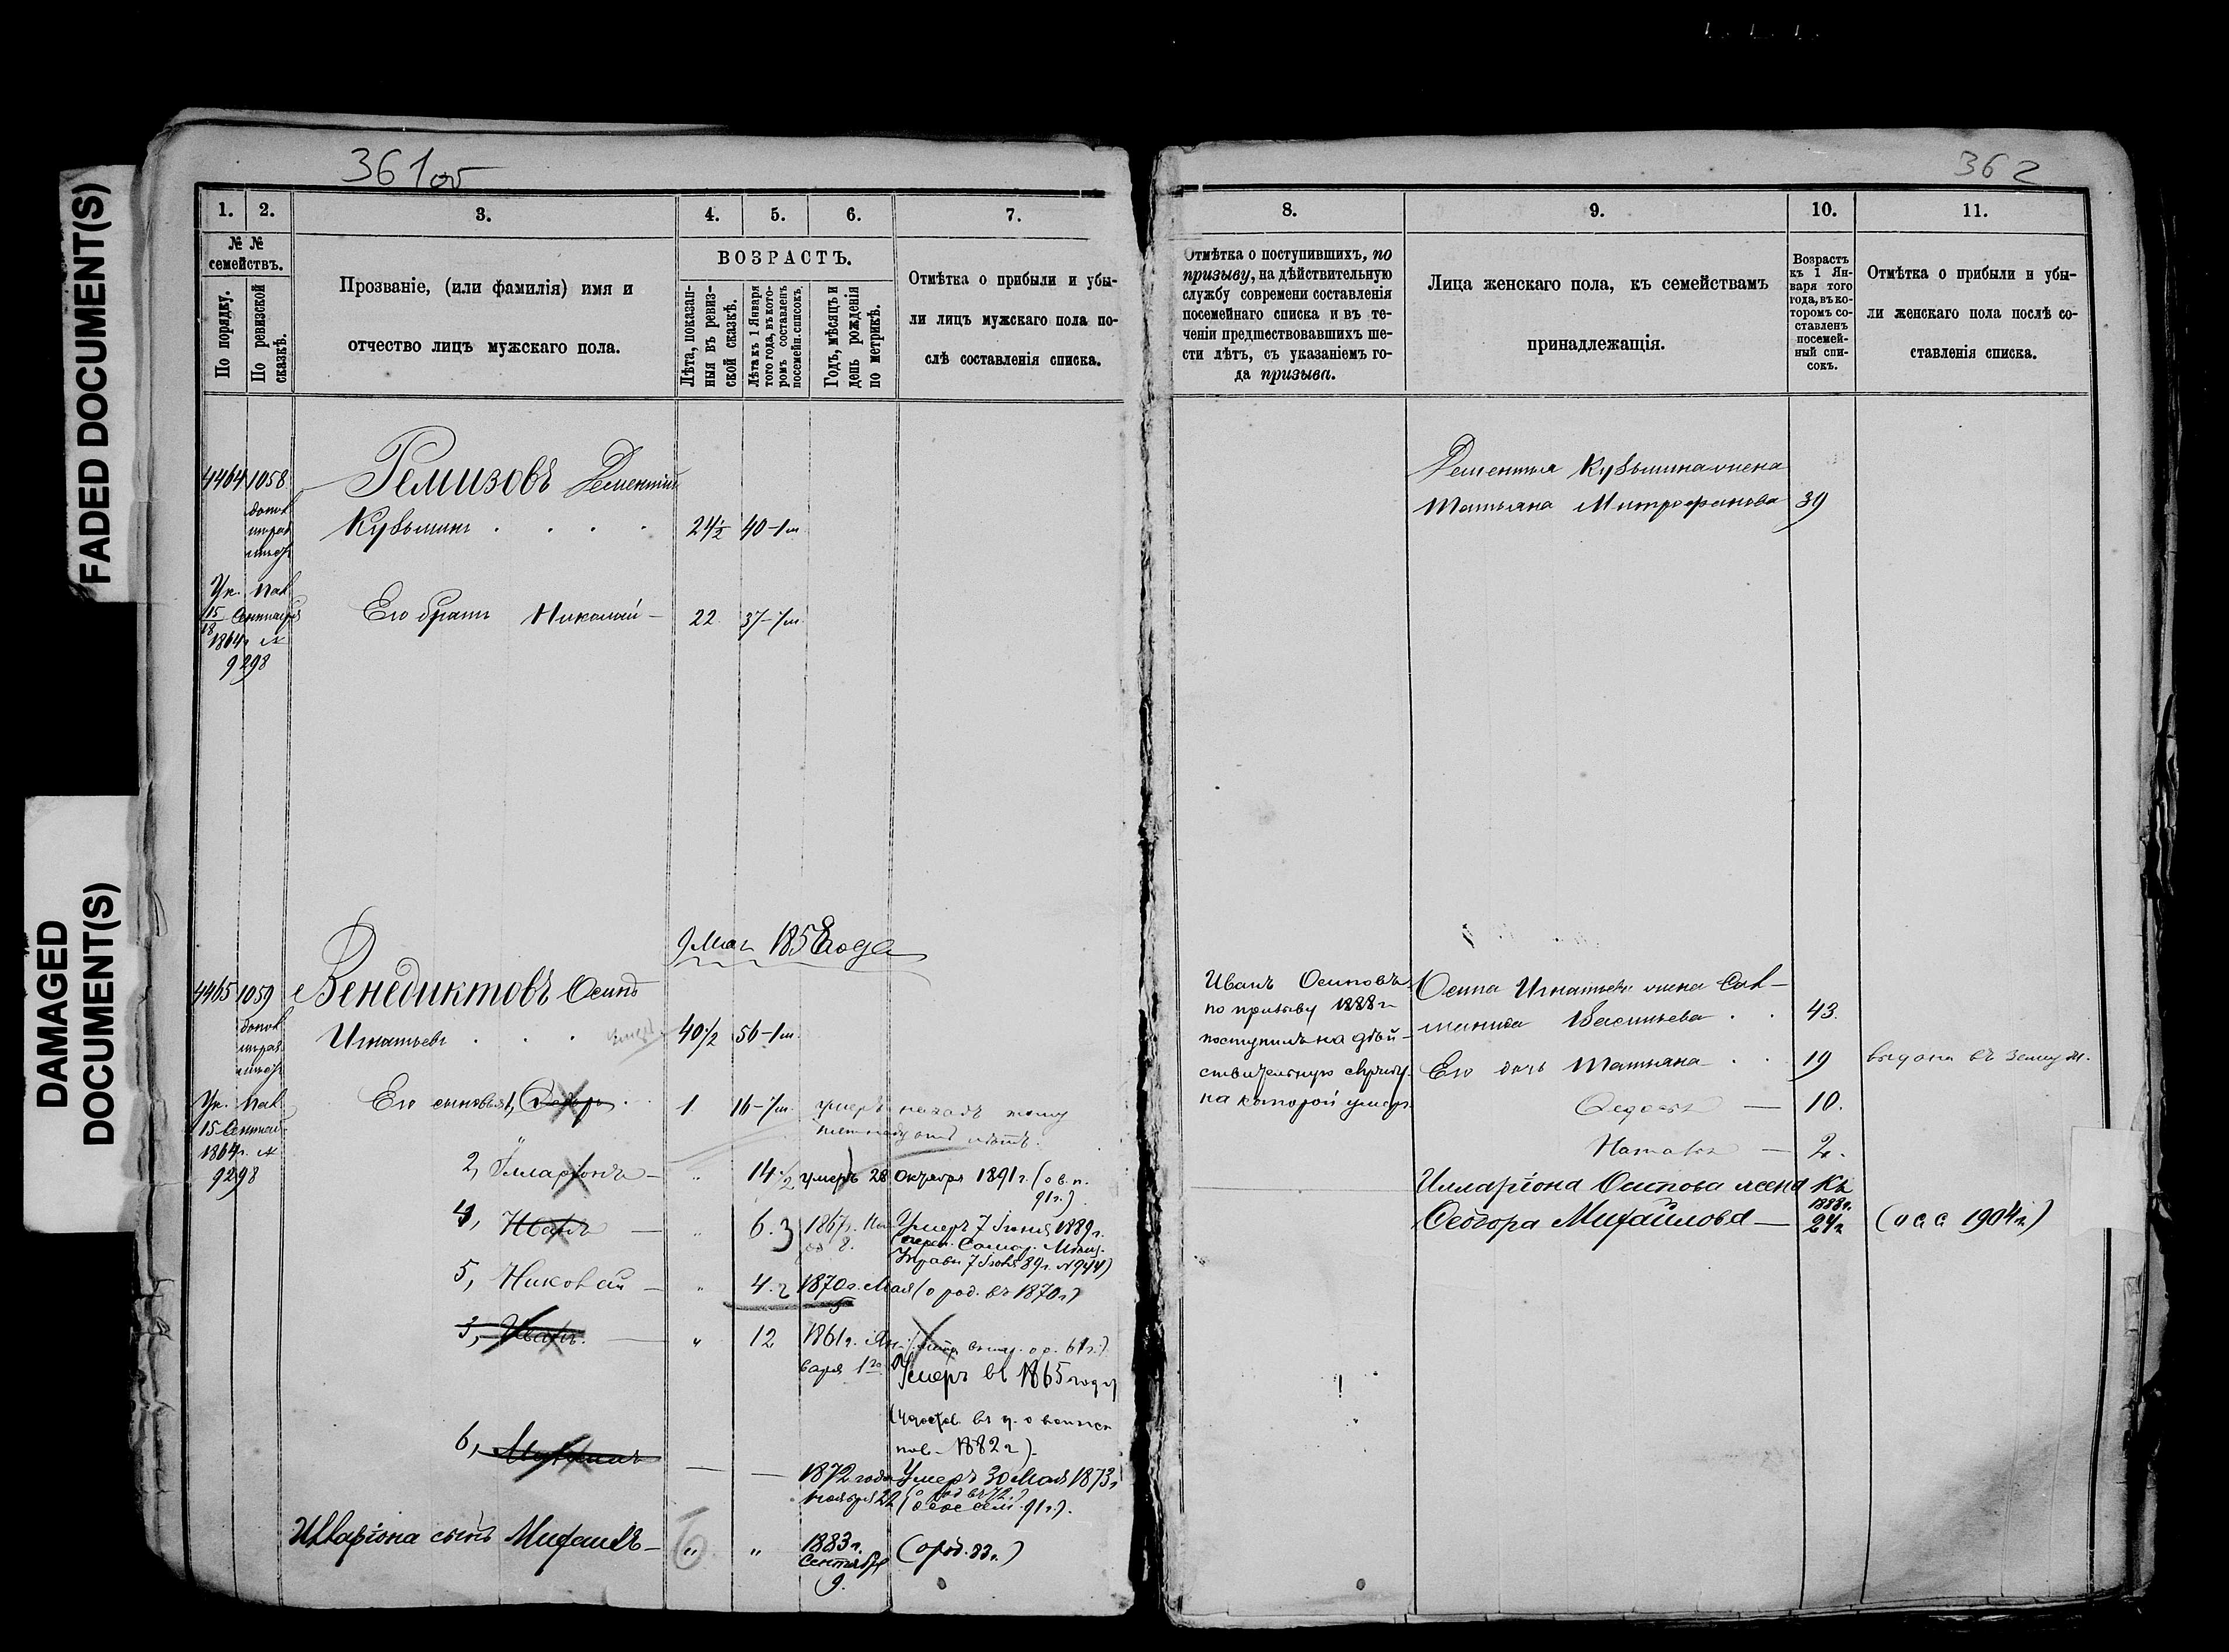 FADED DOCUMENT(S)
DAMAGED
DOCUMENT(S)
361об
1.
2.
3.
4.
5.
6.
7.
№ №
семействъ.
По порядку.
По ревизской
сказкѣ.
Прозваніе, (или фамилія) имя и
отчество лицъ мужскаго пола.
ВОЗРАСТЪ.
Лѣта, показан-
ныя въ ревиз-
ской сказкѣ.
Лѣта къ 1 Января
того года, въ кото-
ромъ составленъ
посемейн. списокъ.
Годъ, мѣсяцъ и
день рожденія
по метрикѣ.
Отмѣтка о прибыли и убы-
ли лицъ мужскаго пола по-
слѣ составленія списка.
4464 1058 Ремизовъ Дементій
Кузьминъ . . . . 24½ 40-1м
Ук. Пал
15/18 Сентября
1864г №
9298
Его братъ Николай — 22 37-7м
9 Мая 1858 года
4465 1059 Венедиктовъ Осипъ
Игнатьевъ . . . умеръ 40½ 56-1м
Ук. Пал
15 Сентяб
1864г. №
9298
Его сыновья 1, Федоръ . . 1 16-7м. умеръ назадъ тому
пятнадцать лѣтъ.
2, Илларіонъ — " 14½ умеръ 28 Октября 1891г. (о в. п.
91г.)
4, Иванъ — " 6. 3 1867г. 8. Умеръ 7 Іюня 1889г.
Управы 7 Іюня 89г. №944)
5, Николай — " 4. 2 1870г. Мая (о род. въ 1870г)
3, Иванъ. — " 12 1861г. Ян-
варя 1го
Умеръ въ 1865 году
пов. 1882г).
6,
— — 1872 года
Ноября 22
Умеръ 30 Мая 1873г
(о род въ 72.)
Илларіона сынъ Михаилъ — " " 1883г.
Сентября
9.
(о род. 83г.)
362
8.
9.
10.
11.
Отмѣтка о поступившихъ, по
призыву, на дѣйствительную
службу современи составленія
посемейнаго списка и въ те-
ченіи предшествовавшихъ ше-
сти лѣтъ, съ указаніемъ го-
да призыва.
Лица женскаго пола, къ семействамъ
принадлежащія.
Возрастъ
къ 1 Ян-
варя того
года, въ ко-
торомъ со-
ставленъ
посемей-
ный спи-
сокъ.
Отмѣтка о прибыли и убы-
ли женскаго пола послѣ со-
ставленія списка.
Дементья Кузьмина жена
Татьяна Митрофанова 39
Иванъ Осиповъ
по призыву 1888г
поступилъ на дѣй-
ствительную службу
на которой умеръ
Осипа Игнатьева жена Сол-
манида Васильева . . 43.
Его дочь Татьяна . . 19 выдана въ замуж.
Федосья — 10.
Наталья — 2.
Илларіона Осипова жена
Ѳеодора Михайлова —
Къ
1888г.
24г
(о с с 1904г.)